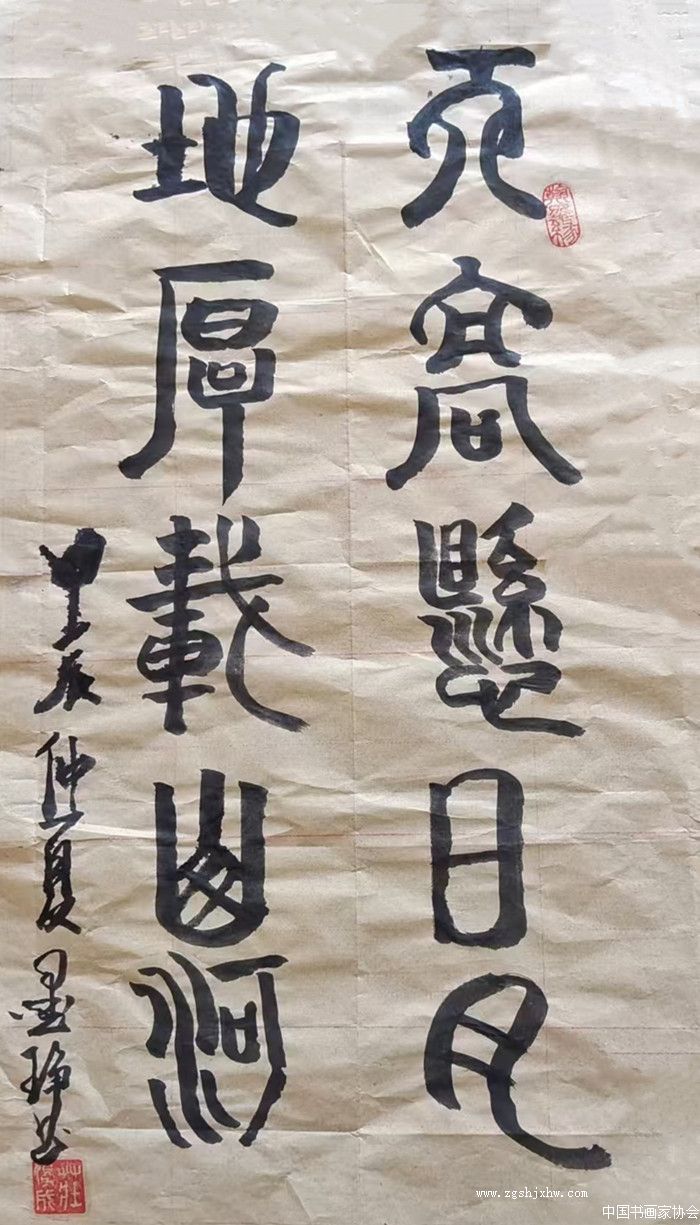 天高懸日月
地厚載山河
甲辰仲夏墨琤书
www.zgshjxhw.com
中国书画家协会